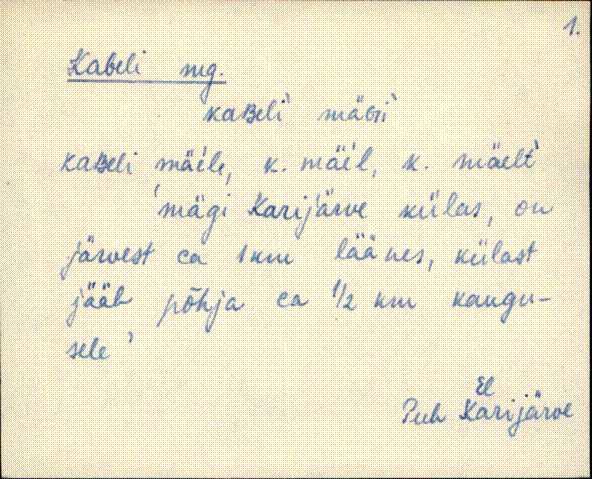 1.
Kabeli mg.
kaʙeli mäɢi
kaʙeli mäele, k. mäel, k. mäelt
'mägi Karijärve külas, on
järvest ca 1 km läänes, külast
jääb põhja ca 1/2 km kaugu-
sele'
El
Puh Karijärve